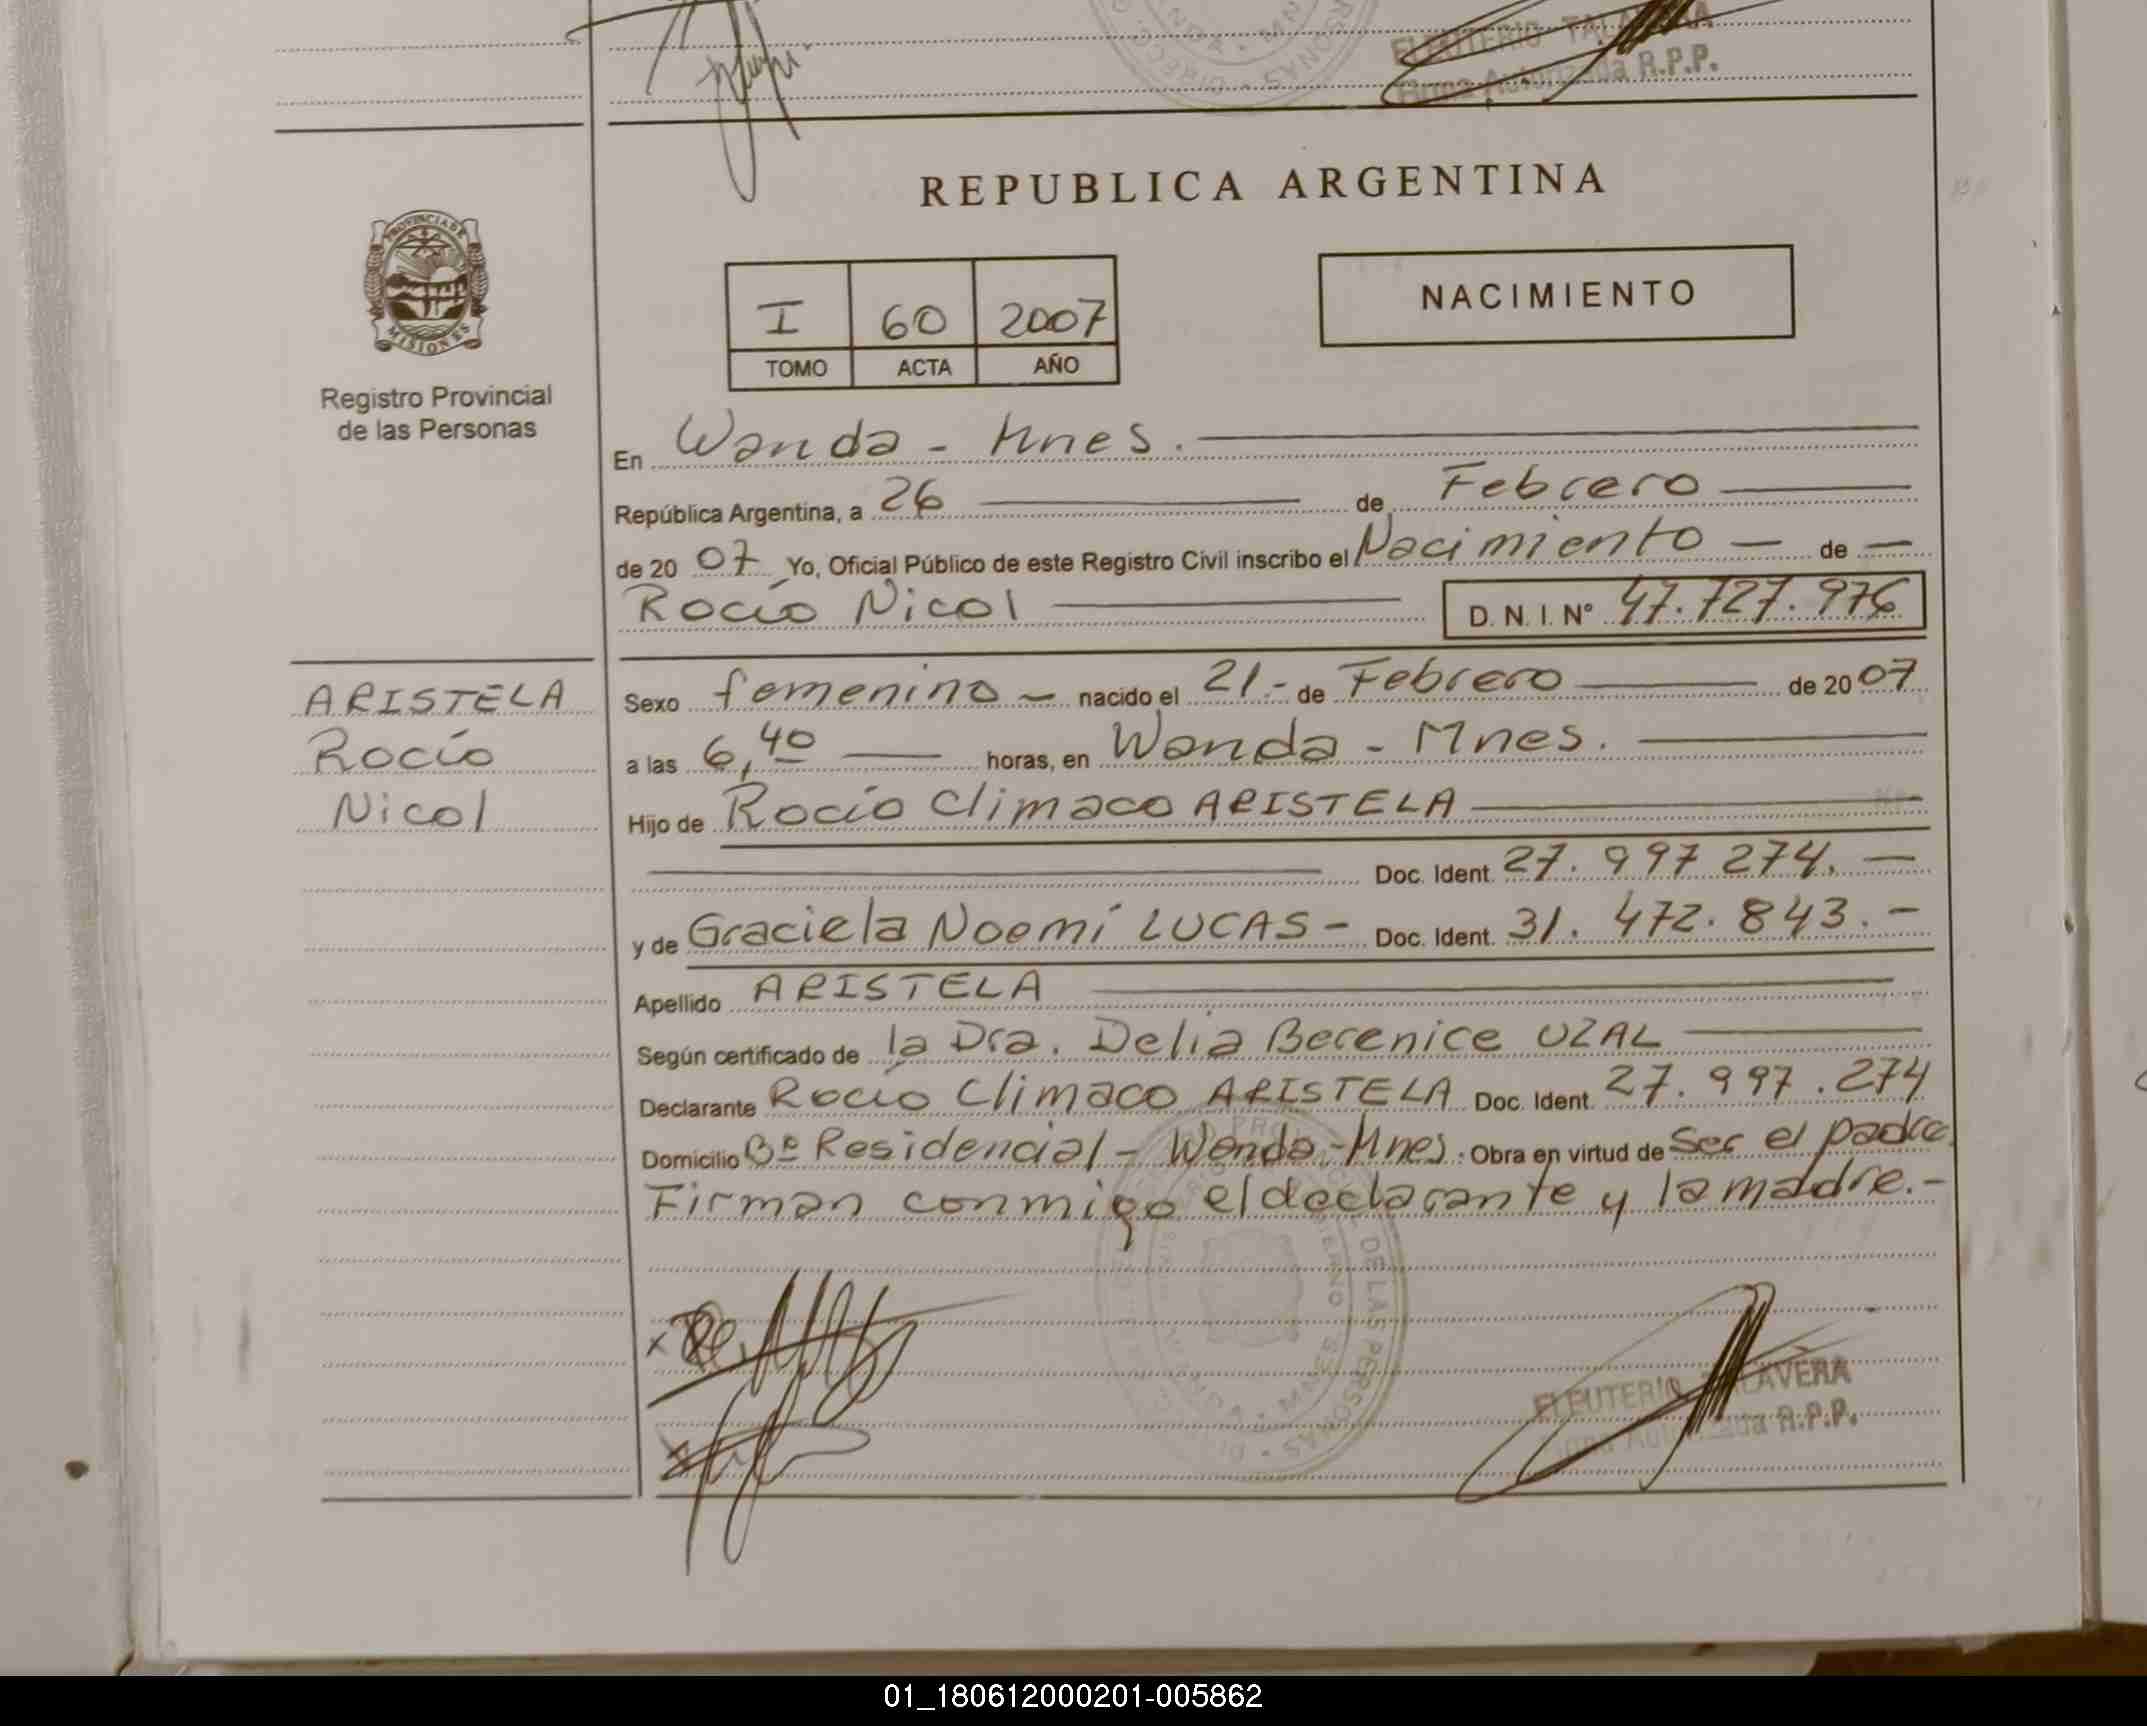 ELEUTERIO TALAVERA
Firma Autorizada R.P.P.
REPUBLICA ARGENTINA
PROVINCIA DE
MISIONES
Registro Provincial
de las Personas
I 60 2007
TOMO ACTA AÑO
NACIMIENTO
En Wanda - Mnes.
República Argentina, a 26 de Febrero
de 20 07 Yo, Oficial Público de este Registro Civil inscribo el Nacimiento de
Rocío Nicol D. N. I. N° 47.727.976
ARISTELA
Rocío
Nicol
Sexo femenino nacido el 21.- de Febrero de 20 07
a las 6,40 horas, en Wanda - Mnes.
Hijo de Rocío Climaco ARISTELA
Doc. Ident. 27.997 274.
y de Graciela Noemí LUCAS - Doc. Ident. 31.472.843.-
Apellido ARISTELA
Según certificado de la Dra. Delia Berenice UZAL
Declarante Rocío Climaco ARISTELA Doc. Ident. 27.997.274
Domicilio Bº Residencial - Wanda - Mnes. Obra en virtud de Ser el padre.
Firman conmigo el declarante y la madre.-
DE LAS PERSONAS
WANDA - MNES
ELEUTERIO TALAVERA
Firma Autorizada R.P.P.
01_180612000201-005862